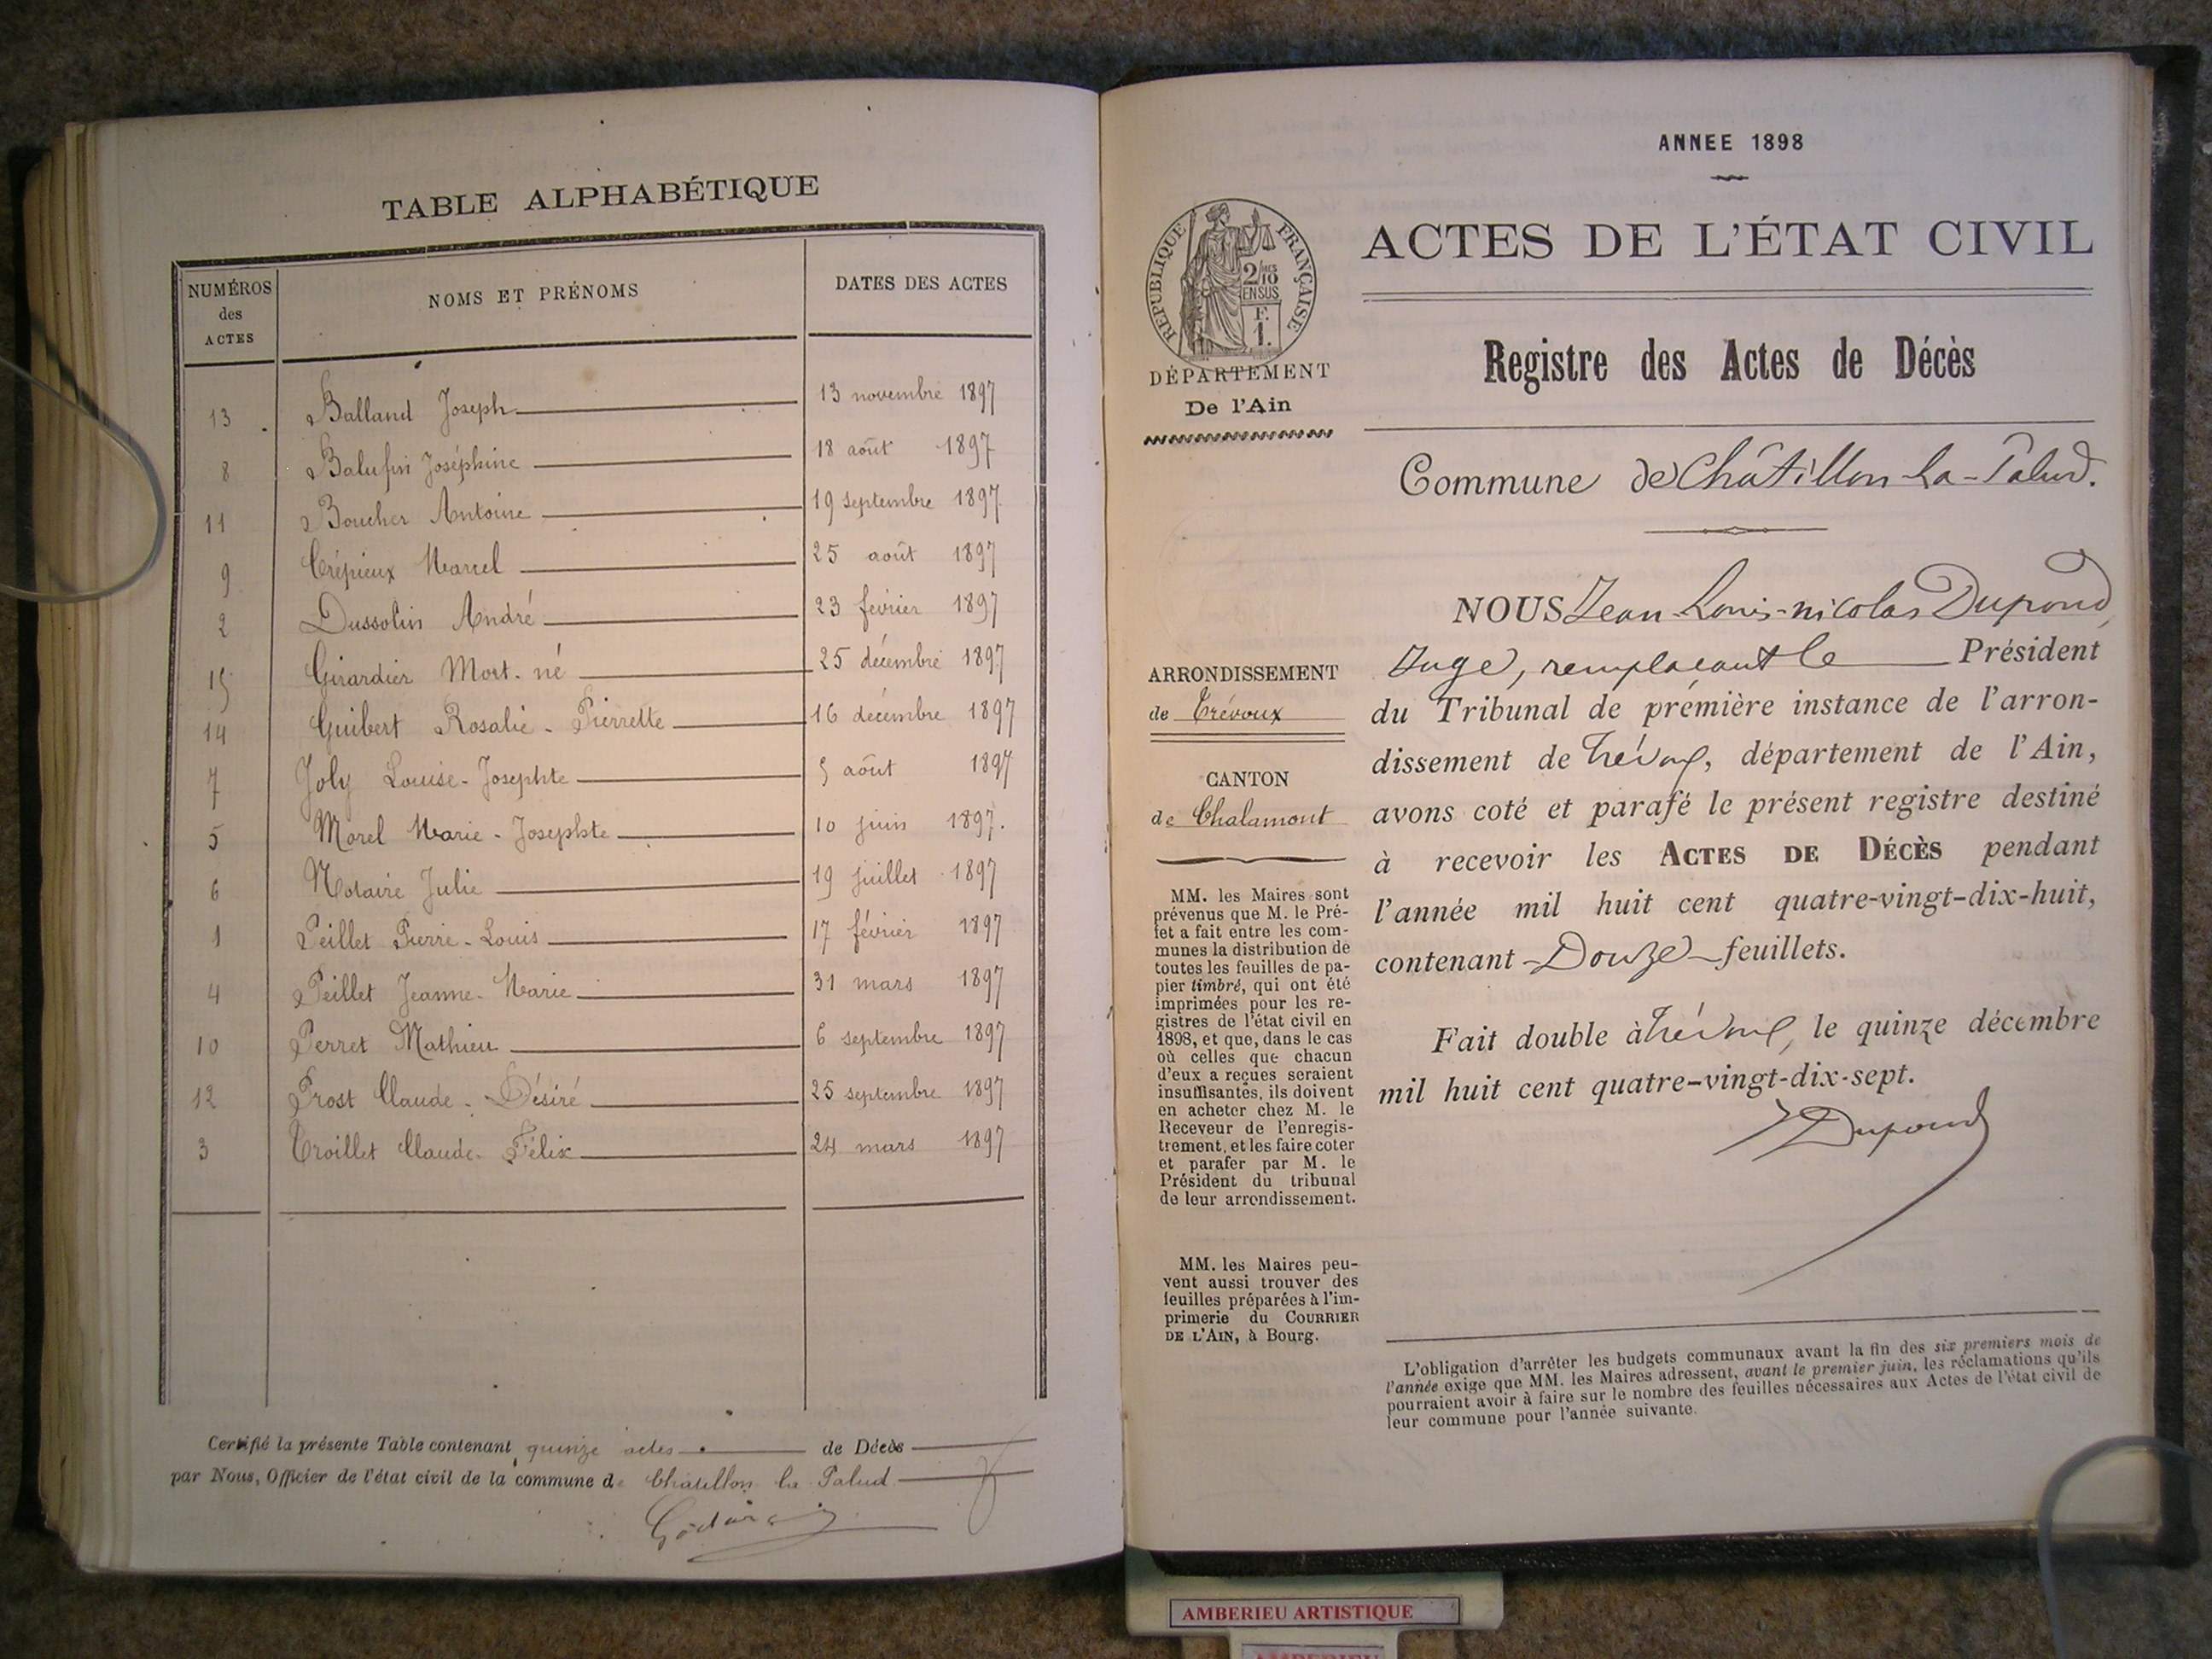 TABLE ALPHABÉTIQUE
NUMÉROS des ACTES NOMS ET PRÉNOMS DATES DES ACTES
13 Balland Joseph 13 novembre 1897
8 Balufin Joséphine 18 août 1897
11 Boucher Antoine 19 septembre 1897
9 Crépieux Marcel 25 août 1897
2 Dussolin André 23 février 1897
15 Girardier Mort-né 25 décembre 1897
14 Guibert Rosalie-Pierrette 16 décembre 1897
7 Joly Louise-Josephte 5 août 1897
5 Morel Marie-Josephte 10 juin 1897.
6 Notaire Julie 19 juillet 1897
1 Peillet Pierre-Louis 17 février 1897
4 Peillet Jeanne-Marie 31 mars 1897
10 Perret Mathieu 6 septembre 1897
12 Prost Claude-Désiré 25 septembre 1897
3 Troillet Claude-Félix 24 mars 1897
Certifié la présente Table contenant quinze actes de Décès
par Nous, Officier de l'état civil de la commune de Chatillon la Palud
ANNEE 1898
RÉPUBLIQUE FRANÇAISE
2/10
EN SUS
F.
1.
DÉPARTEMENT
De l'Ain
ACTES DE L'ÉTAT CIVIL
Registre des Actes de Décès
Commune de Châtillon-La-Palud.
ARRONDISSEMENT
de Trévoux
CANTON
de Chalamont
MM. les Maires sont
prévenus que M. le Pré-
fet a fait entre les com-
munes la distribution de
toutes les feuilles de pa-
pier timbré, qui ont été
imprimées pour les re-
gistres de l'état civil en
1898, et que, dans le cas
où celles que chacun
d'eux a reçues seraient
insuffisantes, ils doivent
en acheter chez M. le
Receveur de l'enregis-
trement, et les faire coter
et parafer par M. le
Président du tribunal
de leur arrondissement.
MM. les Maires peu-
vent aussi trouver des
feuilles préparées à l'im-
primerie du COURRIER
DE L'AIN, à Bourg.
NOUS Jean-Louis-nicolas Dupond,
Juge, remplaçant le Président
du Tribunal de première instance de l'arron-
dissement de Trévoux, département de l'Ain,
avons coté et parafé le présent registre destiné
à recevoir les ACTES DE DÉCÈS pendant
l'année mil huit cent quatre-vingt-dix-huit,
contenant Douze feuillets.
Fait double à Trévoux, le quinze décembre
mil huit cent quatre-vingt-dix-sept.
Dupond
L'obligation d'arrêter les budgets communaux avant la fin des six premiers mois de
l'année exige que MM. les Maires adressent, avant le premier juin, les réclamations qu'ils
pourraient avoir à faire sur le nombre des feuilles nécessaires aux Actes de l'état civil de
leur commune pour l'année suivante.
AMBERIEU ARTISTIQUE
AMBERIEU